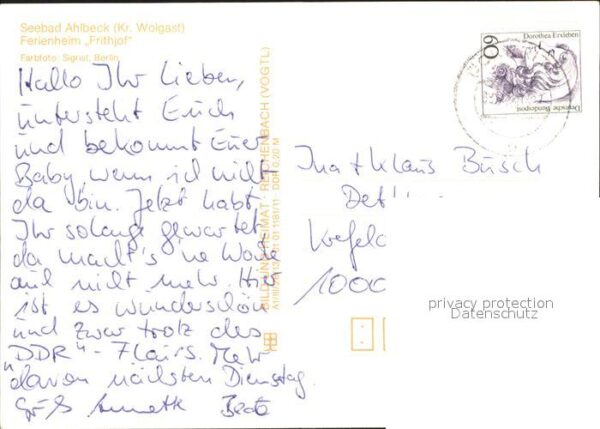 Seebad Ahlbeck (Kr. Wolgast)
Ferienheim „Frithjof“
Farbfoto: Signet, Berlin
Hallo Ihr Lieben,
untersteht Euch
und bekommt Euer
Baby wenn ich nicht
da bin. Jetzt habt
Ihr solange gewartet
da macht's ne Woche
auch nicht mehr. Hier
ist es wunderschön
und zwar trotz des
„DDR“-Flairs. Mehr
davon nächsten Dienstag.
Gruß Annette Beate
BILD UND HEIMAT · REICHENBACH (VOGTL)
01 1181/11 DDR 0,20 M
60
Dorothea Erxleben
Deutsche Bundespost
Ina + Klaus Busch
Krefeld
1000
privacy protection
Datenschutz